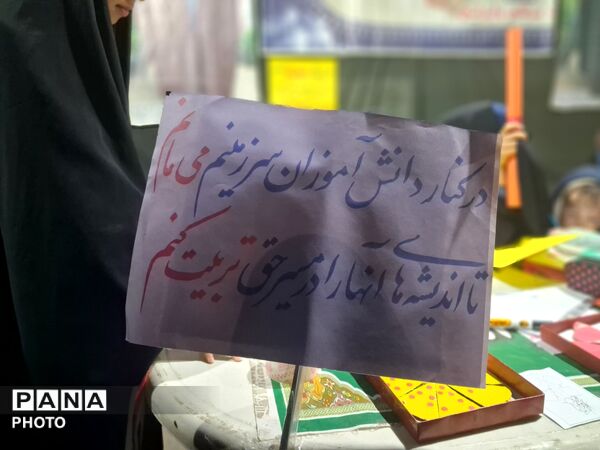 در کنار دانش آموزان سرزمینم می مانم
تا اندیشه های آنها را در مسیر حق تربیت کنم
PANA
PHOTO